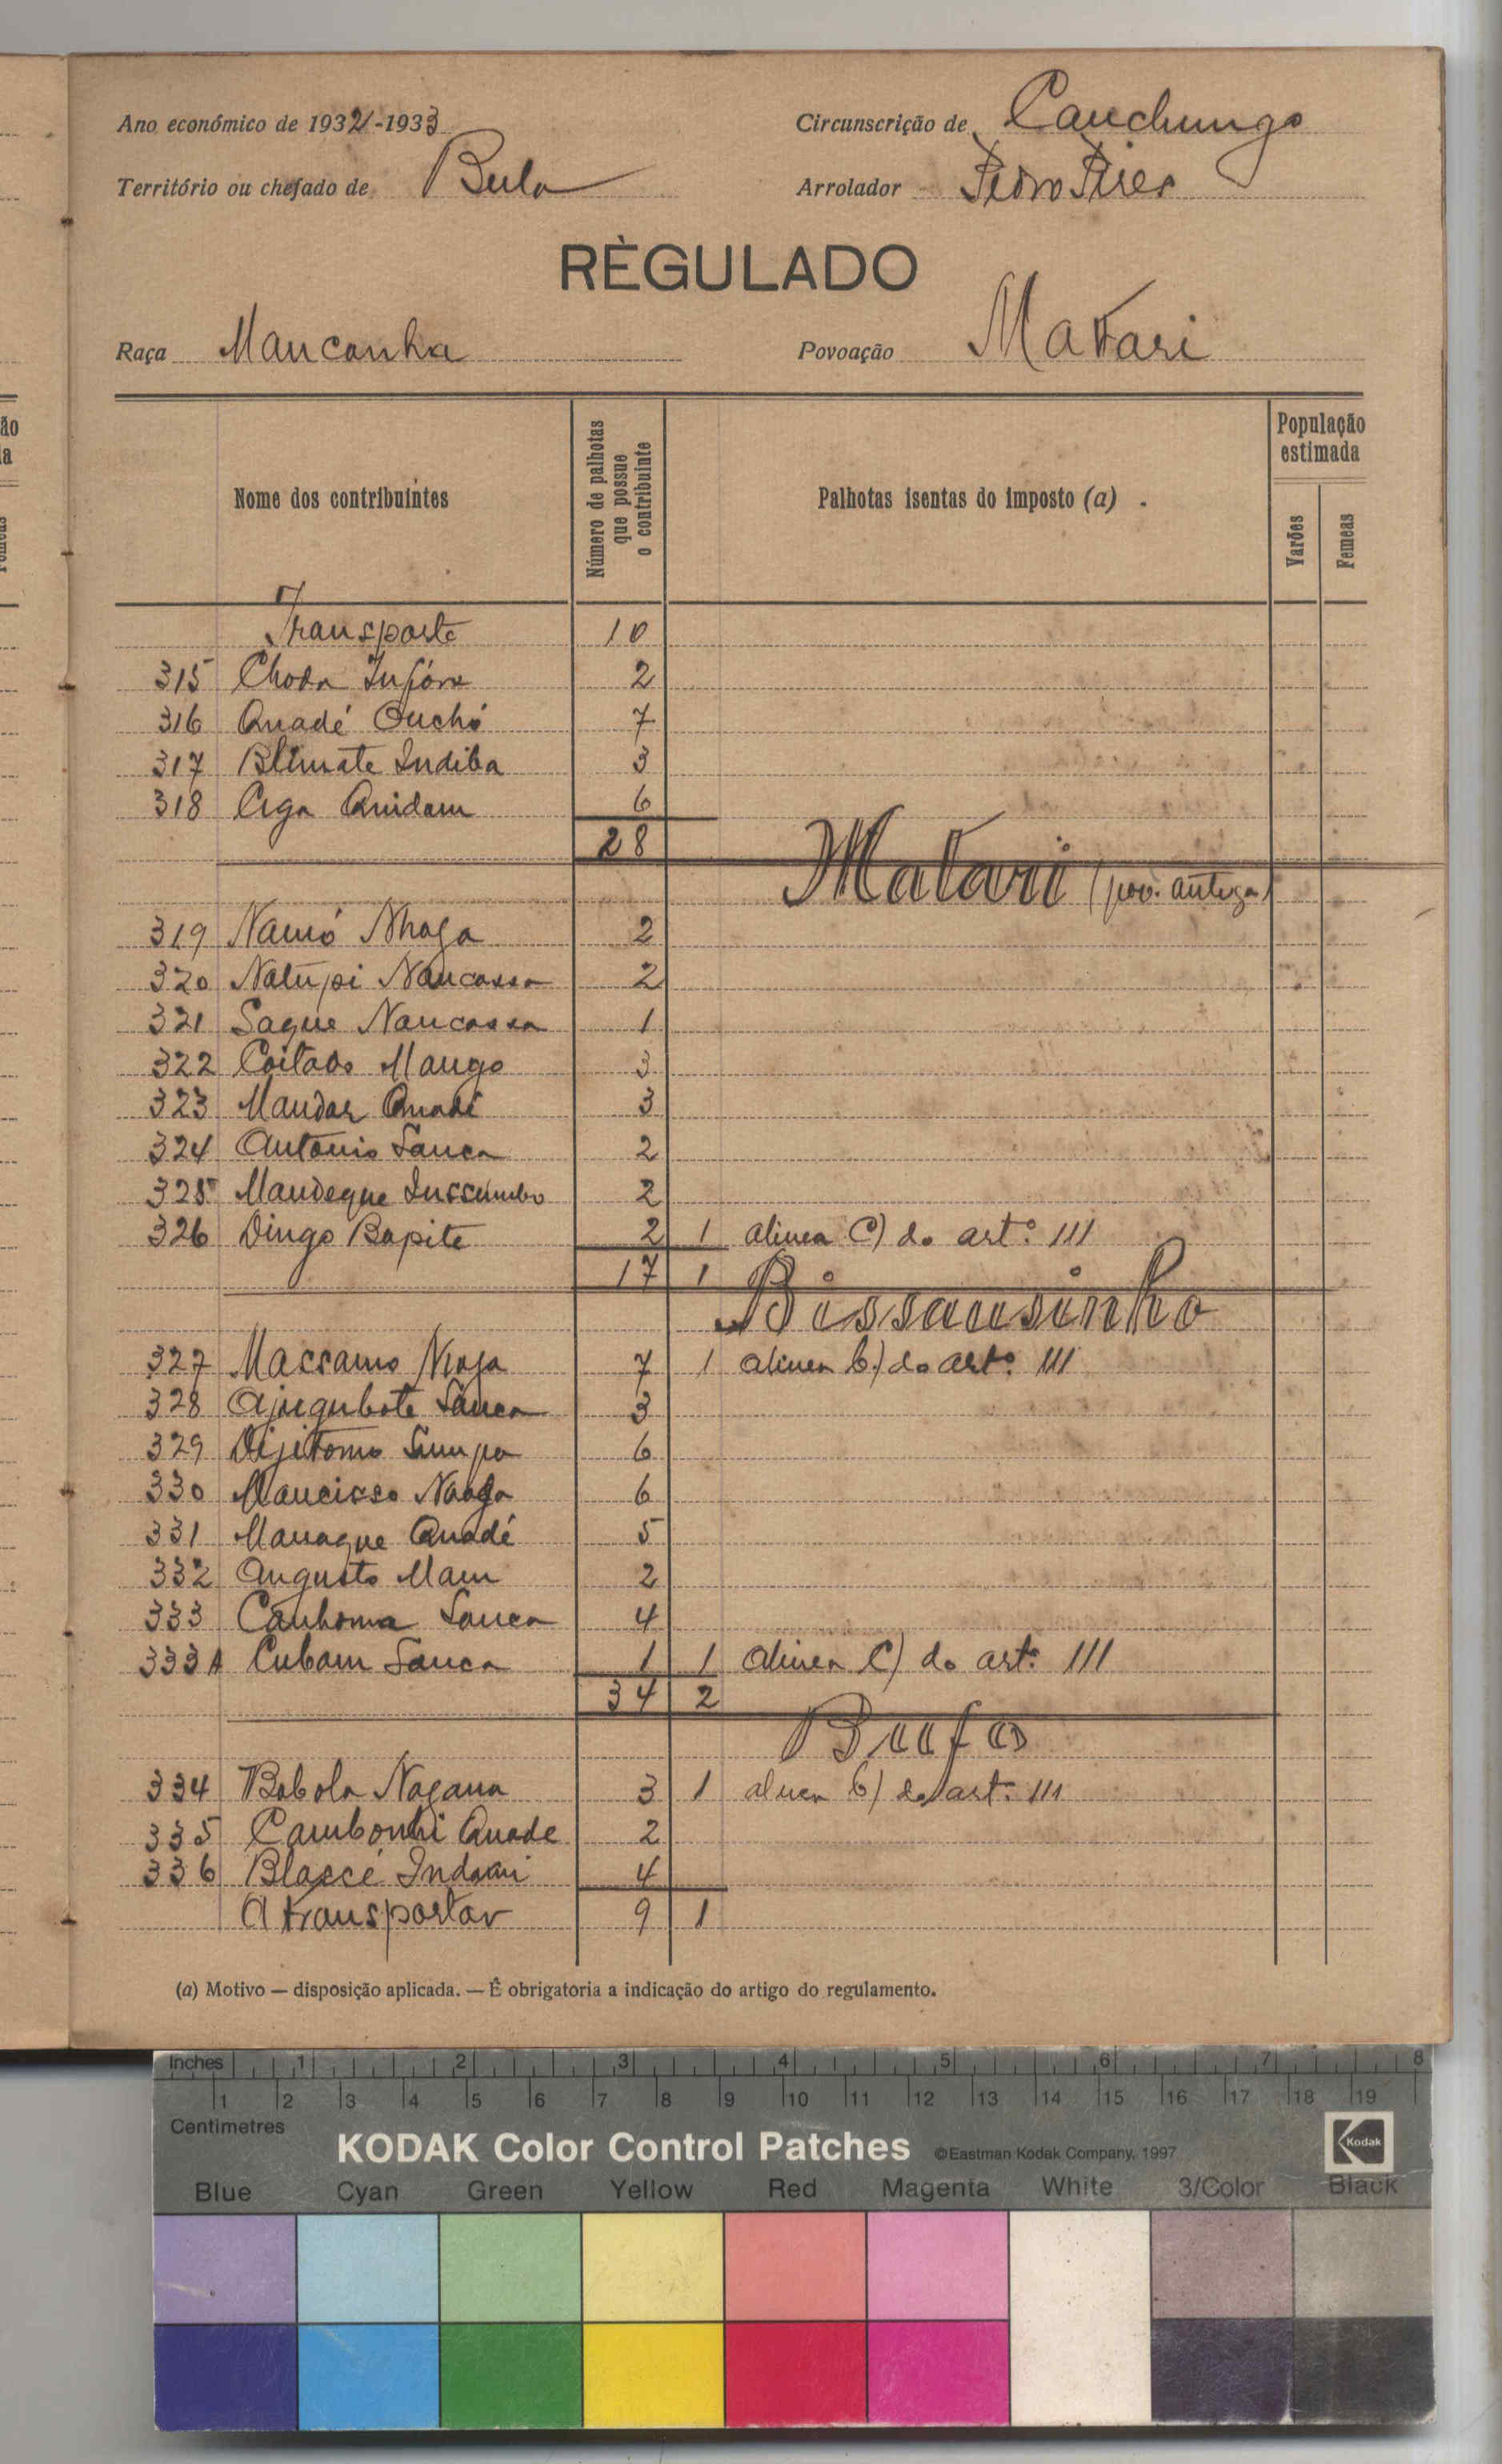 Ano económico de 1932-1933 Circunscrição de Canchungo
Território ou chefado de Bula Arrolador Pedro Pires
RÈGULADO
Raça Mancanha Povoação Matari
Nome dos contribuintes
Número de palhotas que possue o contribuinte
Palhotas isentas do imposto (a)
População estimada
Varões
Femeas
Transporte 10
315 Choda 2
316 Quadé Ouchó 7
317 Blimate Indiba 3
318 Aga Quidam 6
28
Matari (pov. antiga)
319 Namó Nhaga 2
320 Natúpi Nancassa 2
321 Saque Nancassa 1
322 Coitado Mango 3
323 Mandar Quadé 3
324 António Sanca 2
325 Mandeque Inssumbo 2
326 Dingo Bapite 2 1 alinea C) do artº 111
17 1
Bissausinho
327 Massamo Nhaga 7 1 alinea b) do artº 111
328 Ajugubote Sanca 3
329 Dijitomo Sumpa 6
330 Mancisso Naaga 6
331 Manaque Quadé 5
332 Augusto Mam 2
333 Canhoma Sanca 4
333A Cubam Sanca 1 1 alinea C) do artº 111
34 2
Brufo
334 Babola Nagana 3 1 alinea b) do artº 111
335 Cambonhi Quade 2
336 Blaccé 4
A transportar 9 1
(a) Motivo — disposição aplicada. — É obrigatoria a indicação do artigo do regulamento.
Inches 1 2 3 4 5 6 7 8
1 2 3 4 5 6 7 8 9 10 11 12 13 14 15 16 17 18 19
Centimetres
KODAK Color Control Patches ©Eastman Kodak Company, 1997 Kodak
Blue Cyan Green Yellow Red Magenta White 3/Color Black